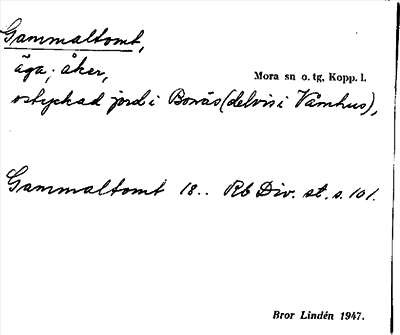 Gammaltomt,
äga; åker,
Mora sn o. tg, Kopp. l.
ostyckad jord i Bonäs (delvis i Våmhus),
Gammaltomt 18.. Rb Div. st. s. 101.
Bror Lindén 1947.